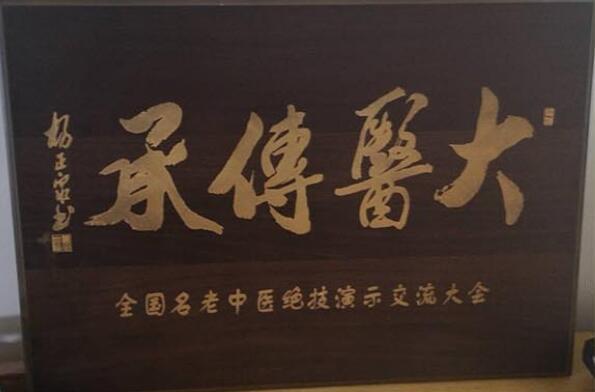 大醫傳承
杨正家书
全国名老中医绝技演示交流大会